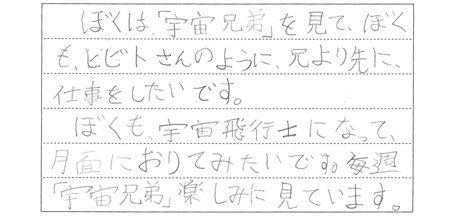 ぼくは、「宇宙兄弟」を見て、ぼく
も、ヒビトさんのように、兄より先に、
仕事をしたいです。
ぼくも、宇宙飛行士になって、
月面におりてみたいです。毎週
「宇宙兄弟」楽しみに見ています。